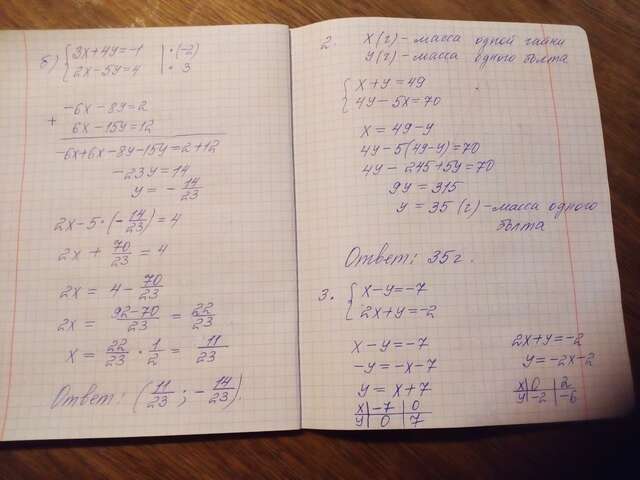 б) { 3x+4y=-1 | · (-2)
2x-5y=4 | · 3
-6x-8y=2
+
6x-15y=12
-6x+6x-8y-15y=2+12
-23y=14
y = - 14/23
2x-5·(-14/23)=4
2x + 70/23 = 4
2x = 4 - 70/23
2x = 92-70/23 = 22/23
x = 22/23 · 1/2 = 11/23
Ответ: (11/23 ; - 14/23).
2. x(г) - масса одной гайки
y(г) - масса одного болта
{ x+y=49
4y-5x=70
x = 49-y
4y-5(49-y)=70
4y-245+5y=70
9y = 315
y = 35 (г) - масса одного
болта
Ответ: 35 г.
3. { x-y=-7
2x+y=-2
x-y=-7
-y=-x-7
y = x+7
x | -7 | 0
y | 0 | 7
2x+y=-2
y=-2x-2
x | 0 | 2
y | -2 | -6